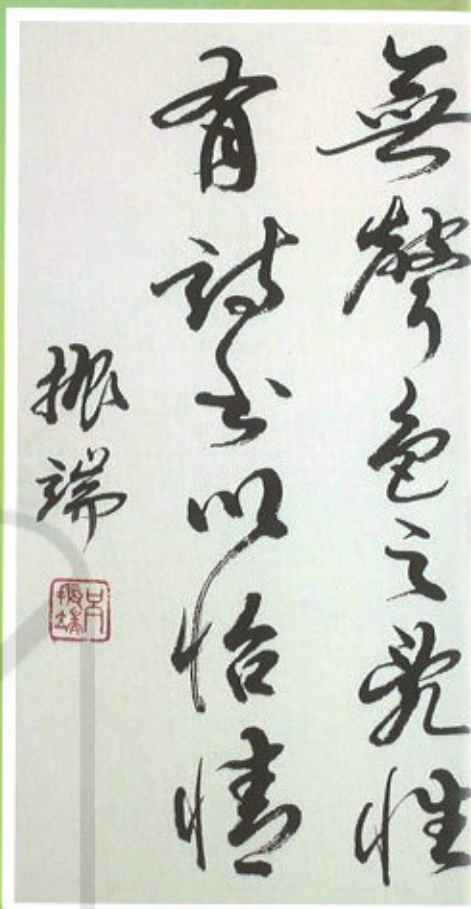 無聲色之亂性
有詩書以怡情
振端
呂振端